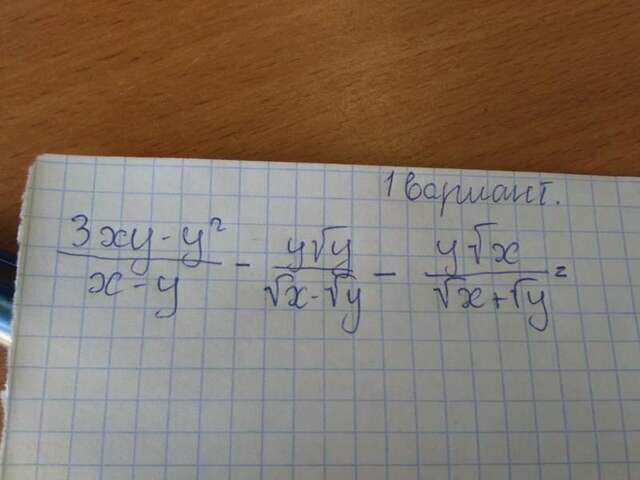 1 вариант.
3xy - y² / x - y - y√y / √x - √y - y√x / √x + √y =